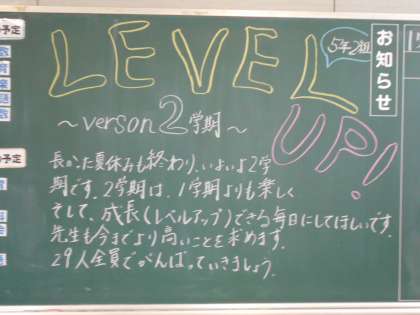 予定
LEVEL
5年2組
お知らせ
UP!
～verson2学期～
予定
長かった夏休みも終わり、いよいよ2学
期です。2学期は、1学期よりも楽しく
そして、成長(レベルアップ)できる毎日にしてほしいです。
先生も今までより高いことを求めます。
29人全員でがんばっていきましょう。